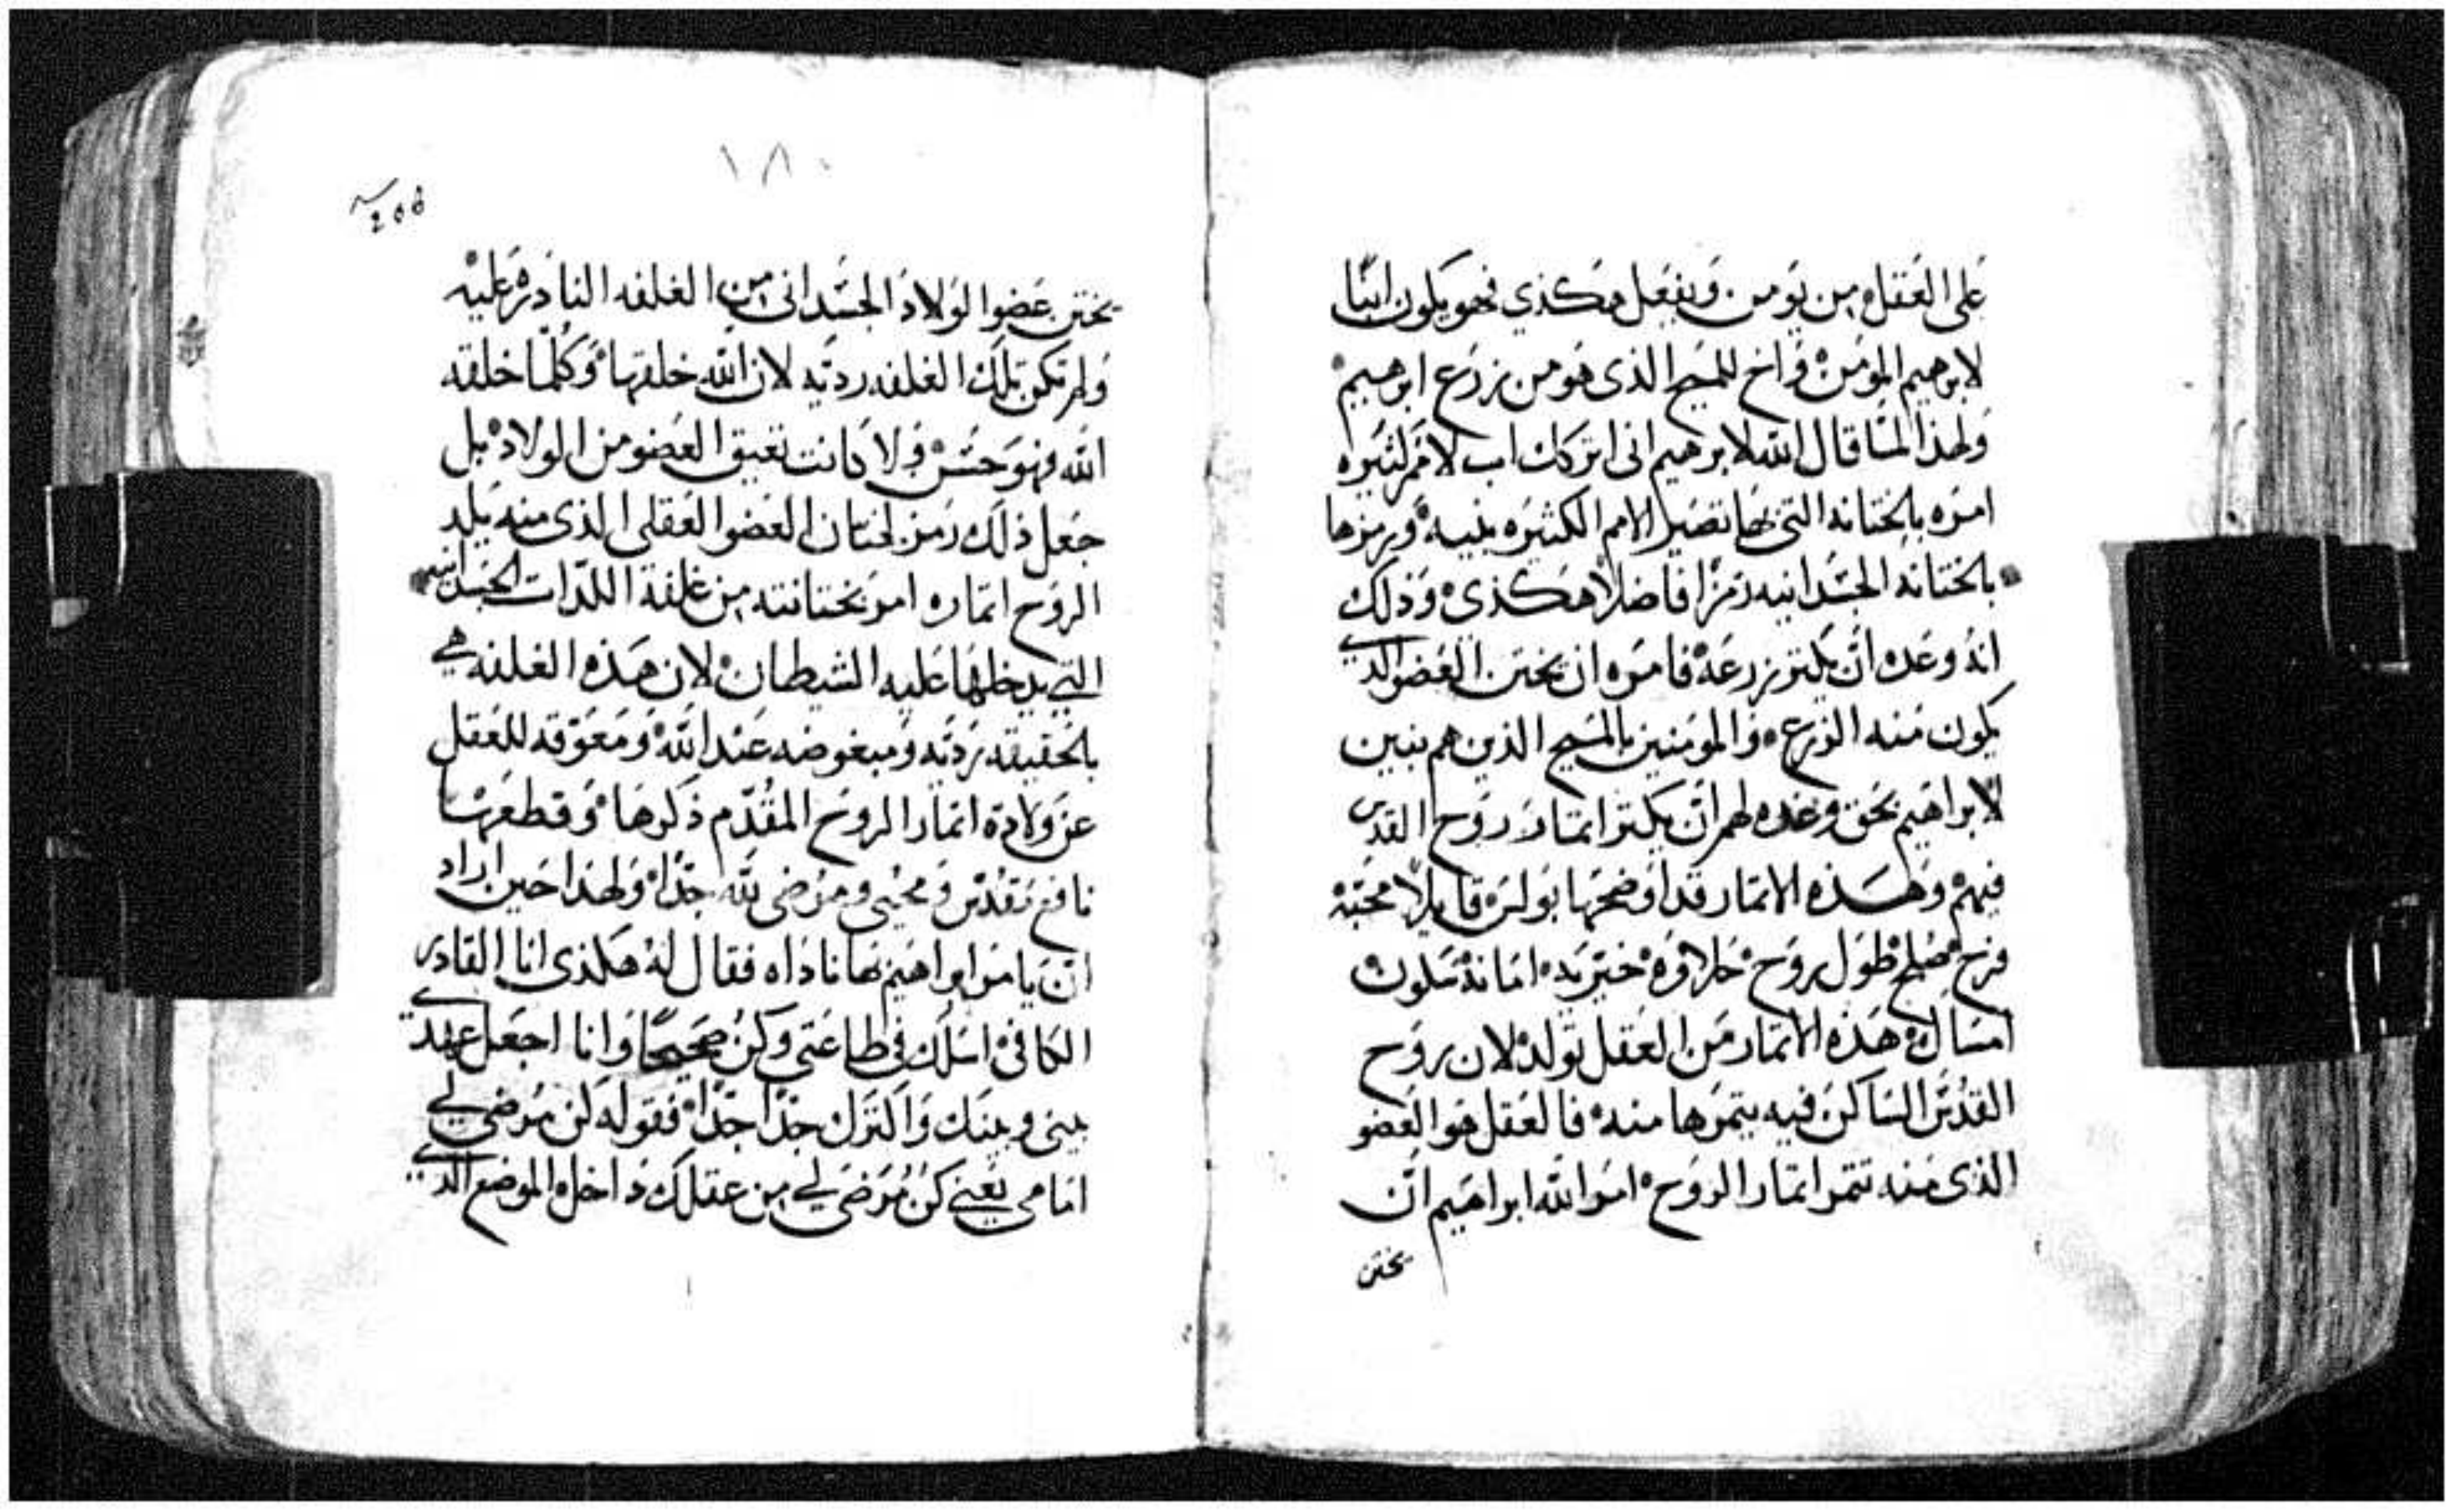 على العقل. من يومن ويفعل هكذي فهو يكون ابنًا
لابرهيم المومن. واخ للمسيح الذى هو من زرع ابرهيم.
ولهذا لما قال الله لابرهيم انى اتركك اب لامم كثيره
امره بالختانه التى بها تصير الامم الكثيره بنيه. ويرمزها
بالختانه الجسدانيه رمزًا فاضلًا هكذى. وذلك
انه وعده ان يكثر زرعه. فامره ان يختن العضو الذي
يكون منه الزرع. والمومنين بالمسيح الذين هم بنين
لابراهيم بحق وعده لهم ان يكثر اتمار روح القدس
فيهم. وهذه الاتمار قد اوضحها بولس. قايلًا محبة.
فرح. صلح. طول روح. حلاوه. خيريه. امانه. سكون.
امساك. هذه الاتمار من العقل تولد. لان روح
القدس الساكن فيه يتمرها منه. فالعقل هو العضو
الذى منه تتمر اتمار الروح. امر الله ابراهيم ان
يختن
١٨٠
يختن عضو الولاد الجسدانى من الغلفه النادره عليه.
ولم تكن تلك الغلفه رديه لان الله خلقها. وكلما خلقه
الله فهو حسن. ولا كانت تعيق العضو من الولاد. بل
جعل ذلك رمز لختان العضو العقلى الذى منه يلد
الروح اتماره امر بختانته من غلفة اللدات الجسدانيه
التي يدخلها عليه الشيطان. لان هذه الغلفه هي
بالحقيقه رديه ومبغوضه عند الله. ومعوقه للعقل
عن ولادة اتمار الروح المقدم ذكرها. وقطعها
نافع مقدس ومحيى ومرضى لله جدًا. ولهذا حين اراد
ان يامر ابراهيم بها ناداه فقال له هكذى انا القادر
الكافى. اسلك فى طاعتى وكن صحيحًا وانا اجعل عهدي
بينى وبينك واكثرك جدًا جدًا. فقوله كن مرضي لي
امامى يعني كن مرضى لي من عقلك داخل. الموضع الذي